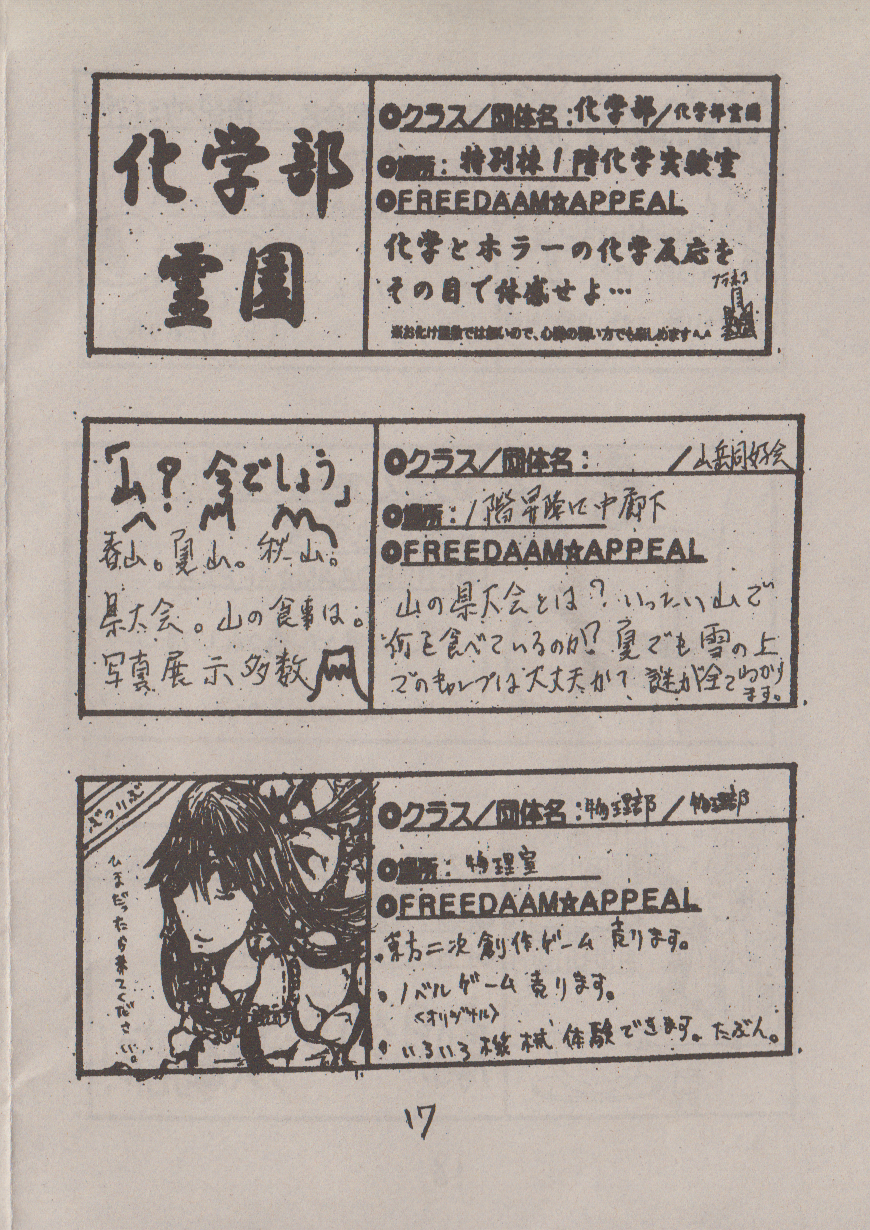 化学部
霊園
●クラス／団体名：化学部／化学部霊園
●場所：特別棟1階化学実験室
●FREEDAAM☆APPEAL
化学とホラーの化学反応を
その目で体感せよ…
※お化け屋敷では無いので、心臓の弱い方でも楽しめます^^
「山？今でしょう」
春山。夏山。秋山。
県大会。山の食事は。
写真展示多数
●クラス／団体名：　／山岳同好会
●場所：1階昇降口中廊下
●FREEDAAM☆APPEAL
山の県大会とは？いったい山で
何を食べているのか？夏でも雪の上
でのキャンプは大丈夫か？謎が全てわかり
ます。
ぶつりぶ
ひまだったら来てください。
●クラス／団体名：物理部／物理部
●場所：物理室
●FREEDAAM☆APPEAL
・東方二次創作ゲーム売ります。
・ノベルゲーム売ります。
〈オリジナル〉
・いろいろ機械体験できます。たぶん。
17